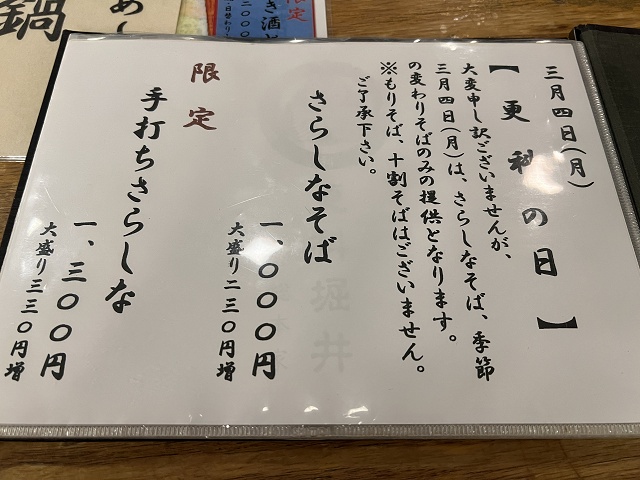 三月四日(月)
【更科の日】
大変申し訳ございませんが、
三月四日(月)は、さらしなそば、季節
の変わりそばのみの提供となります。
※もりそば、十割そばはございません。
ご了承下さい。
さらしなそば
一、〇〇〇円
大盛り二三〇円増
限定
手打ちさらしな
一、三〇〇円
大盛り三三〇円増
堀井
限定
き酒
鍋
めし